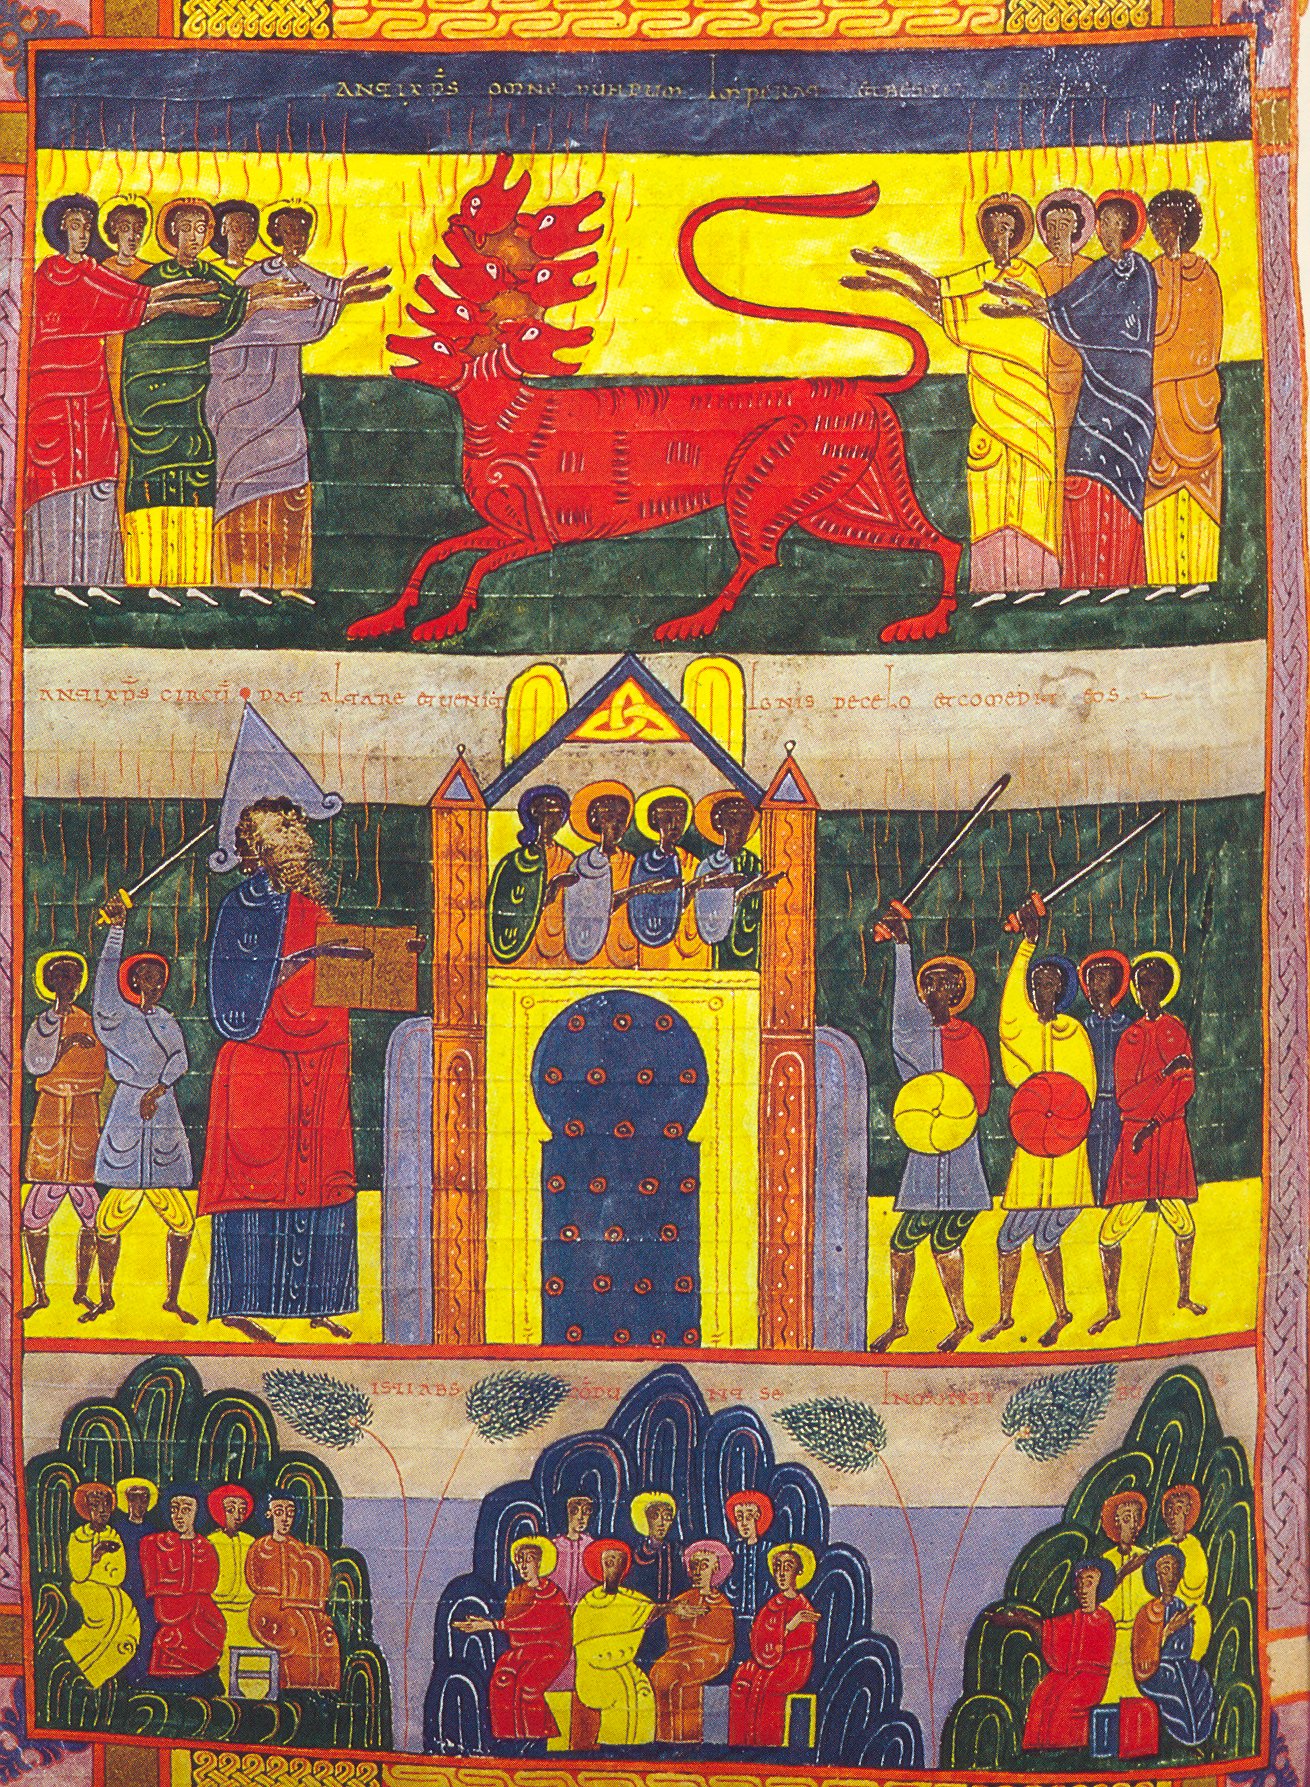 ANTIXPS OMNE MUNDUM IMPERAT
ANTIXPS CIRCU DAT ALTARE ET VENIT IGNIS DE CELO ET COMEDIT EOS
ISTI ABSCODUNT SE IN MONTI